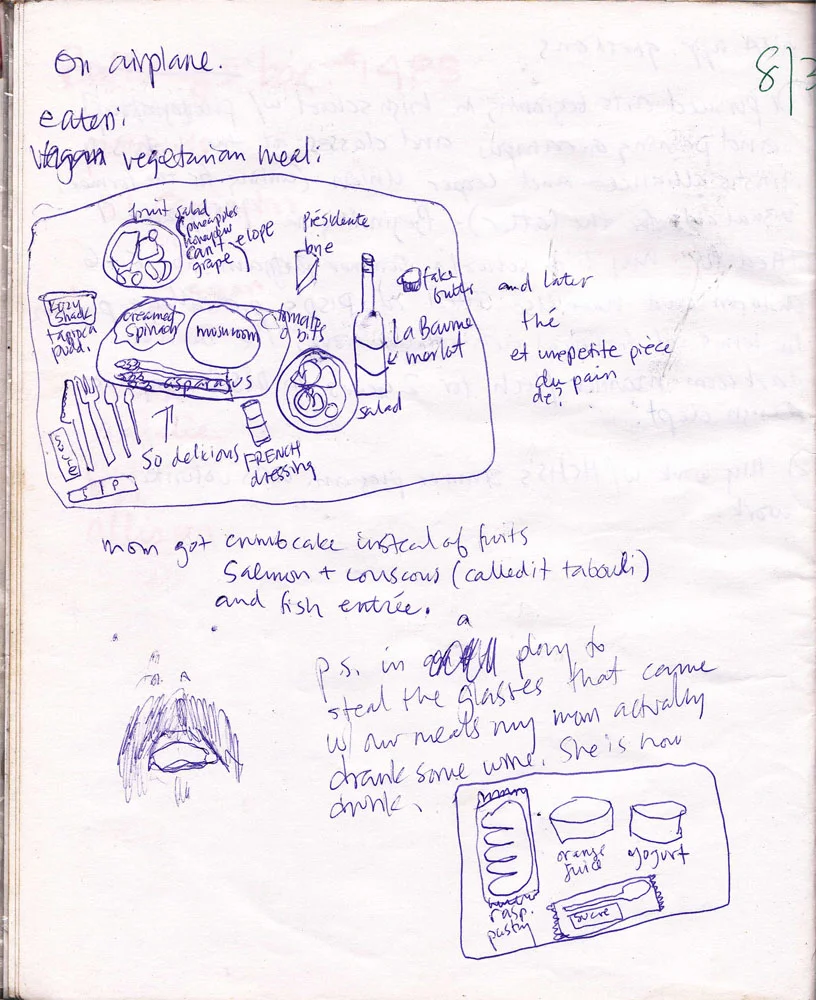 On airplane.
8/3
eaten:
vegetarian meal:
fruit salad
(pineapples
honeydew
cantelope
grape)
Présidente
brie
fake
butter
and later
thé
et une petite pièce
du pain
de?
tapioca
pudd.
creamed
spinach
mushroom
tomato
bits
La Baume
merlot
asparatus
salad
sucre
So delicious
FRENCH
dressing
S I P
mom got crumbcake instead of fruits
Salmon + couscous (called it tabouli)
and fish entrée.
p.s. in a ploy to
steal the glasses that came
w/ our meals my mom actually
drank some wine. She is now
drunk.
orange
juice
yogurt
rasp.
pastry
sucre